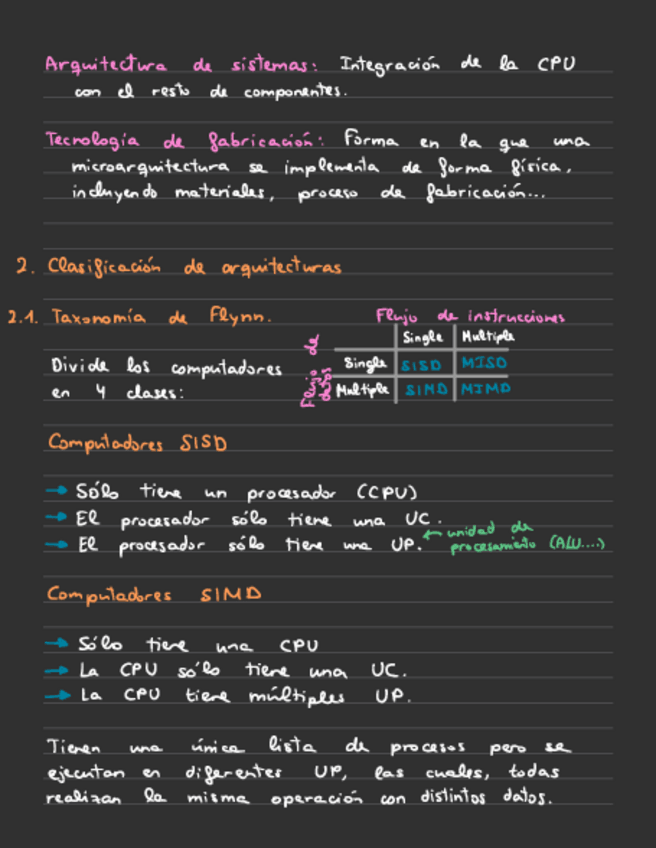 Arquitectura de sistemas: Integración de la CPU
con el resto de componentes.
Tecnología de fabricación: Forma en la que una
microarquitectura se implementa de forma física,
incluyendo materiales, proceso de fabricación...
2. Clasificación de arquitecturas
2.1. Taxonomía de Flynn.
Flujo de instrucciones
Single Multiple
Divide los computadores
en 4 clases:
Flujo de datos
Single SISD MISD
Multiple SIMD MIMD
Computadores SISD
→ Sólo tiene un procesador (CPU)
→ El procesador sólo tiene una UC.
→ El procesador sólo tiene una UP.
← unidad de
procesamiento (ALU....)
Computadores SIMD
→ Sólo tiene una CPU
→ La CPU sólo tiene una UC.
→ La CPU tiene múltiples UP.
Tienen una única lista de procesos pero se
ejecutan en diferentes UP, las cuales, todas
realizan la misma operación con distintos datos.